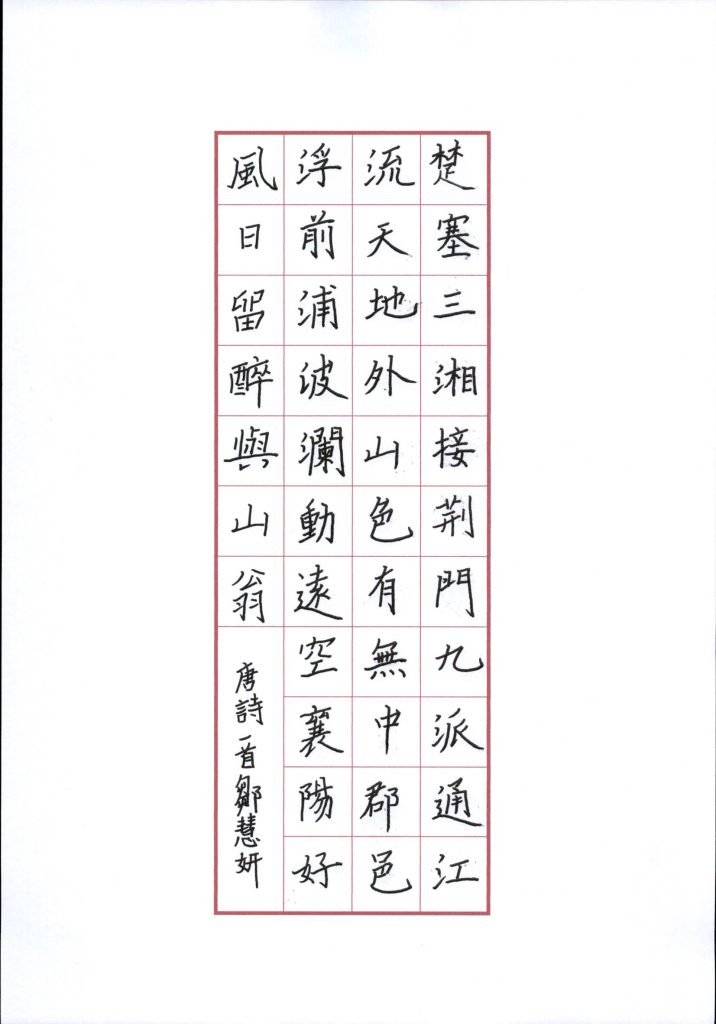 楚塞三湘接荆門九派通江
流天地外山色有無中郡邑
浮前浦波瀾動遠空襄陽好
風日留醉與山翁
唐詩一首鄒慧妍